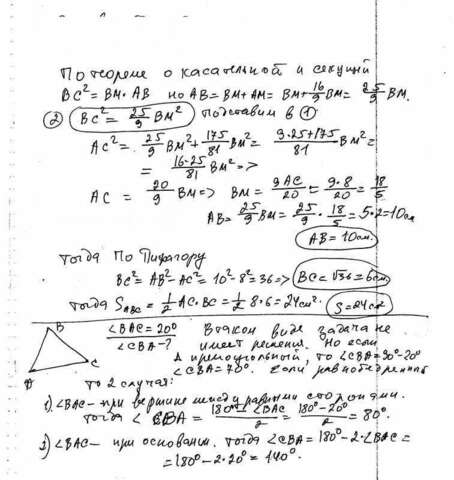 По теореме о касательной и секущей
BC² = BM·AB но AB = BM+AM = BM+16/9 BM = 25/9 BM.
② BC² = 25/9 BM² подставим в ①
AC² = 25/9 BM² + 175/81 BM² = 9·25+175/81 BM² =
= 16·25/81 BM² =>
AC = 20/9 BM => BM = 9AC/20 = 9·8/20 = 18/5
AB = 25/9 BM = 25/9 · 18/5 = 5·2 = 10см
AB = 10см.
тогда По Пифагору
BC² = AB² - AC² = 10² - 8² = 36 => BC = √36 = 6см.
тогда S ABC = 1/2 AC·BC = 1/2 8·6 = 24см². S = 24см²
B
C
A
∠BAC = 20° В таком виде задача не
∠CBA - ? имеет решения. Но если
Δ прямоугольный, то ∠CBA = 90° - 20°
∠CBA = 70°. Если равнобедренный
то 2 случая:
1) ∠BAC - при вершине между равными сторонами.
тогда ∠CBA = 180° - ∠BAC/2 = 180° - 20°/2 = 80°.
2) ∠BAC - при основании. тогда ∠CBA = 180° - 2·∠BAC =
= 180° - 2·20° = 140°